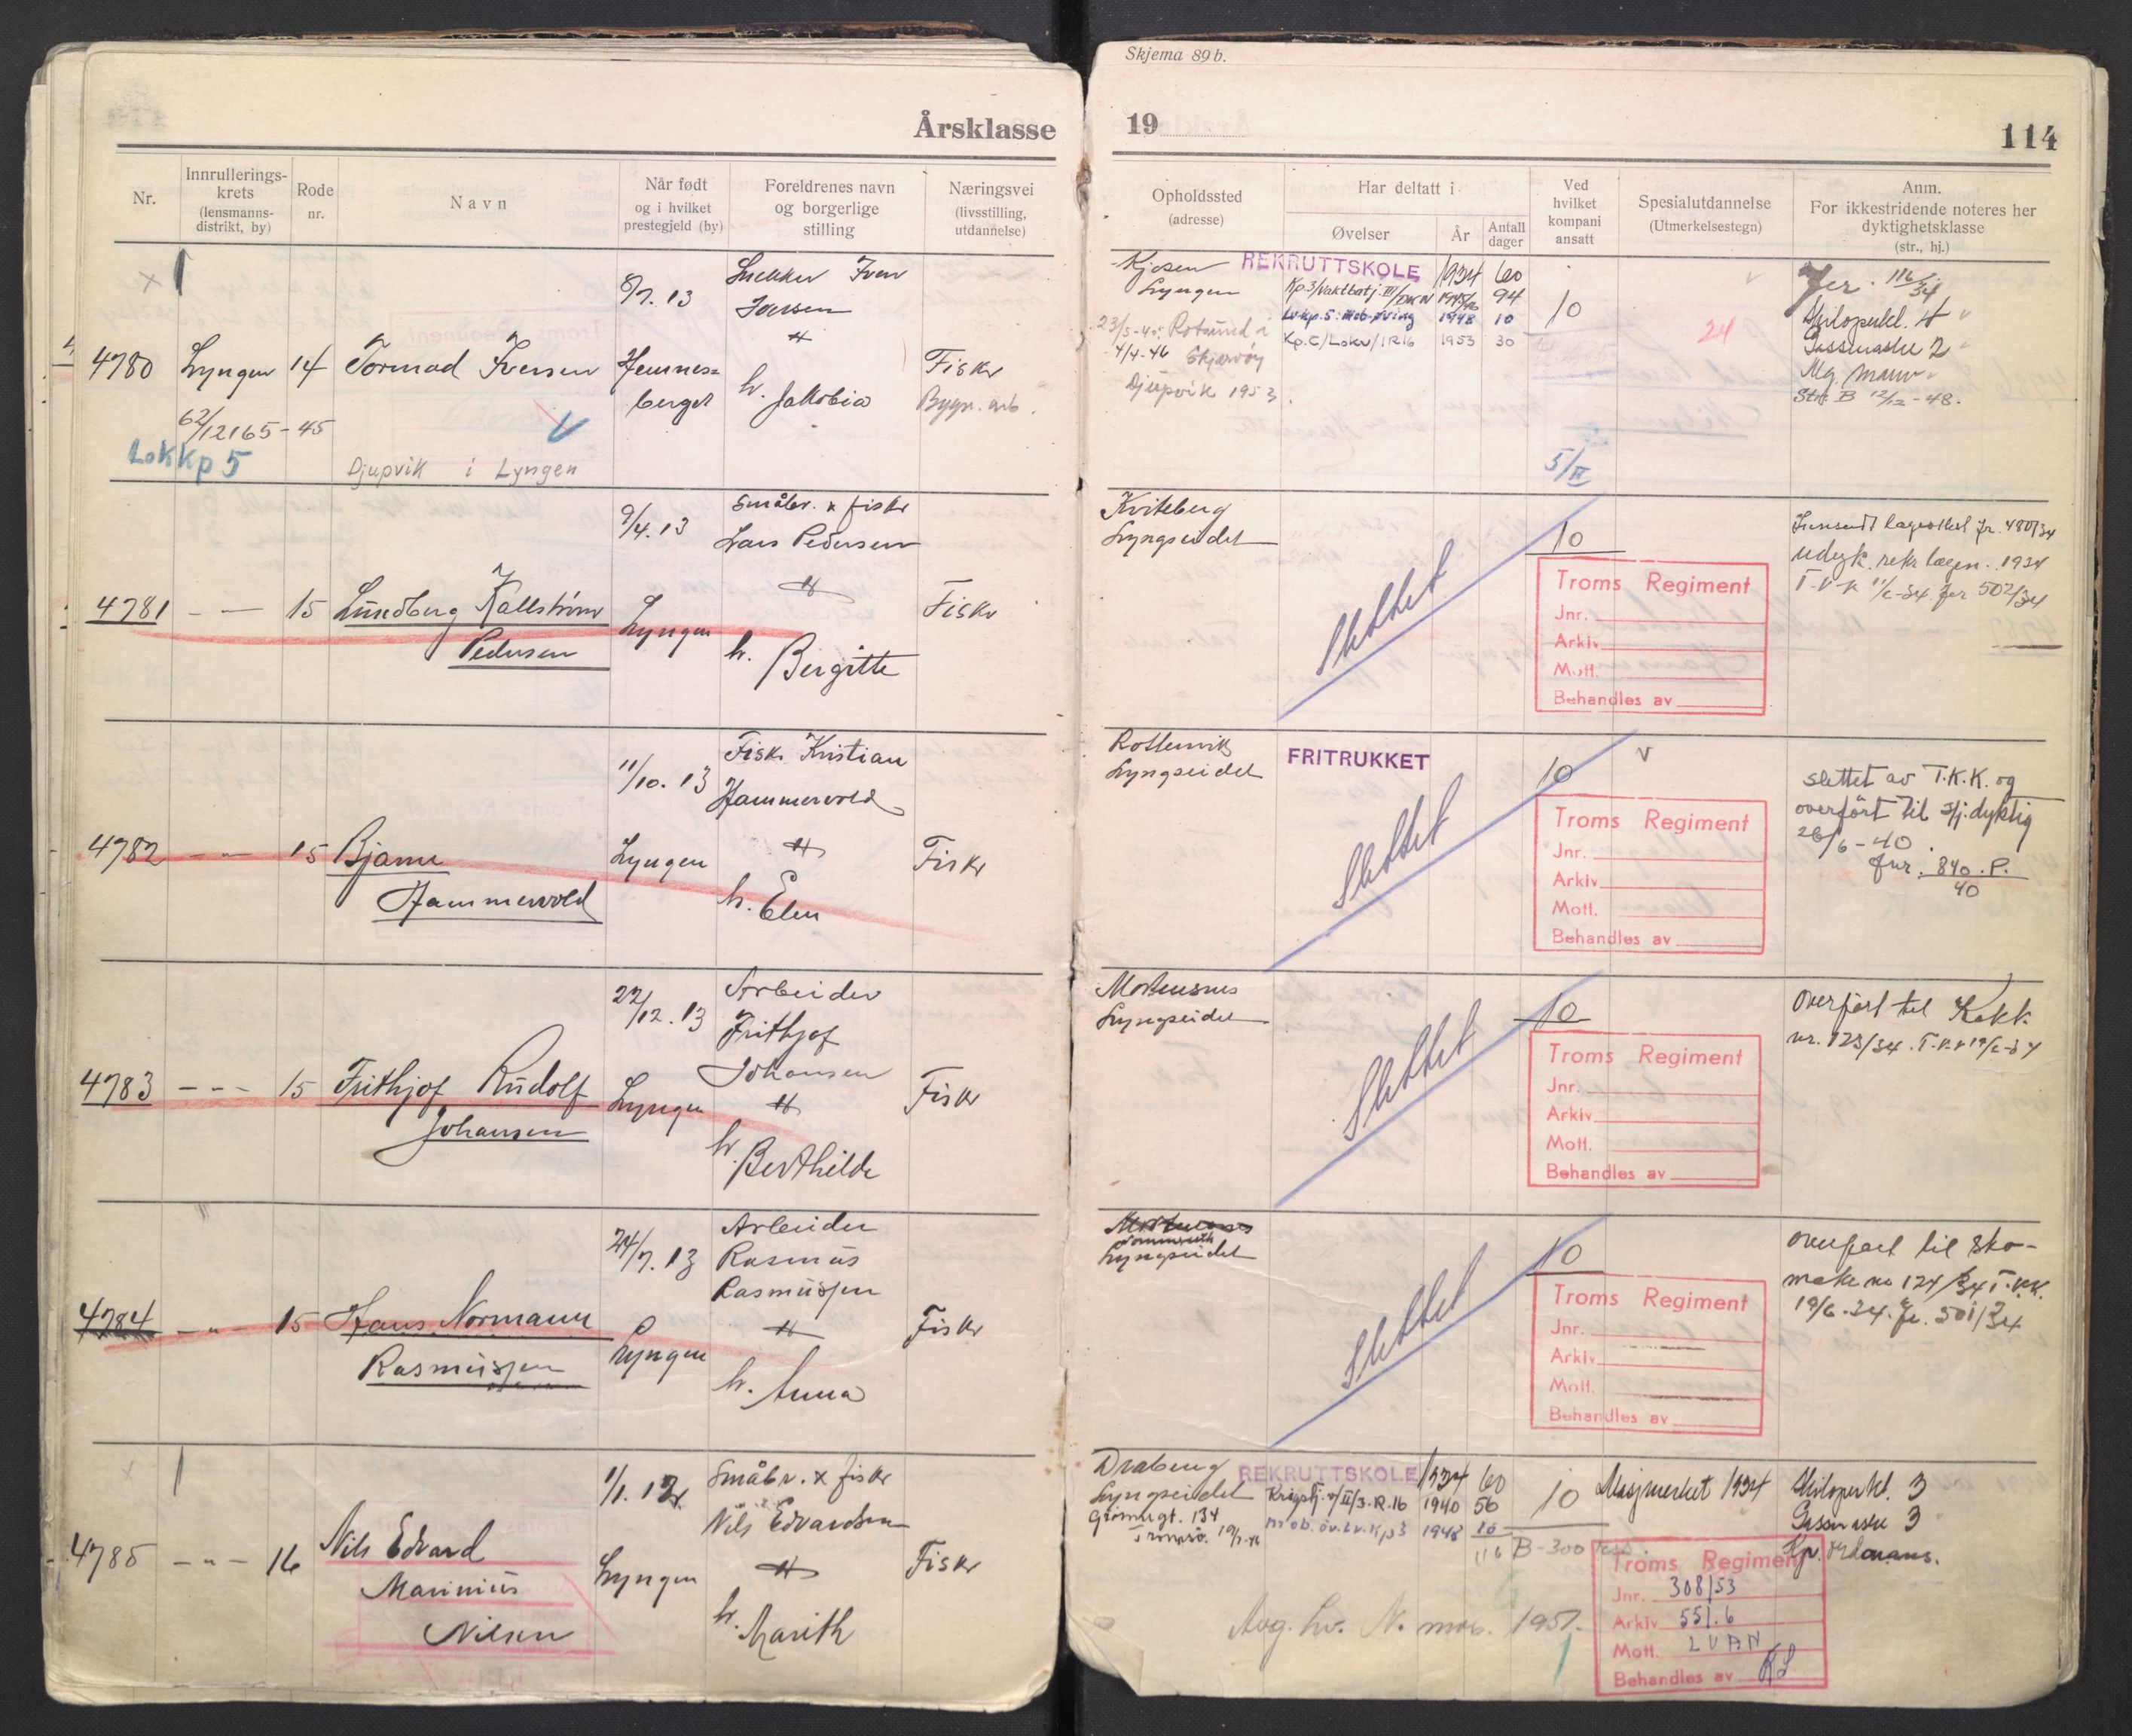 Skjema 89 b.
Årsklasse
19
114
Nr.
Innrullerings-
krets
(lensmanns-
distrikt, by)
Rode
nr.
Navn
Når født
og i hvilket
prestegjeld (by)
Foreldrenes navn
og borgerlige
stilling
Næringsvei
(livsstilling,
utdannelse)
Opholdssted
(adresse)
Har deltatt i
Øvelser
År
Antall
dager
Ved
hvilket
kompani
ansatt
Spesialutdannelse
(Utmerkelsestegn)
Anm.
For ikkestridende noteres her
dyktighetsklasse
(str., hj.)
4780
Lyngen
14
Tormod Iversen
8/7. 13
Hemnes=
berget
Snekker Iver
Iversen
h. Jakobia
Fisker
Bygn. arb.
62/12165-45
Lokkp 5
Djupvik i Lyngen
Kjosen
Lyngen
23/5-45: Rotsund i
4/4-46 Skjervøy
Djupvik 1953.
REKRUTTSKOLE 1934 60
Kp.3/Vaktbatj. III/DKN 1945/46 94
Lv.kp.5: Mob.øving 1948 10
Kp.C/Lokv/IR16 1953 30
10
5/II
24
116/34
Gassmaske 2
Mg. mann
Str. B 12/12-48.
4781
15
Lundberg Kallstrøm
Pedersen
9/4. 13
Lyngen
Småbr. x fisker
Lars Pedersen
h. Bergitte
Fisker
Kviteberg
Lyngseidet
Slettet
10
Troms Regiment
Jnr.
Arkiv
Mott.
Behandles av
Innsendt lægeattest jr. 480/34
udygk. rekr. lægen. 1934
T.K.K 11/6-34. jnr 502/34
4782
15
Bjarne
Hammervold
11/10. 13
Lyngen
Fisk. Kristian
Hammervold
h. Elen
Fisker
Rottenvik
Lyngseidet
FRITRUKKET
Slettet
10
Troms Regiment
Jnr.
Arkiv
Mott.
Behandles av
slettet av T.K.K. og
overført til stj. dyktig
26/6-40.
Jnr. 840.P.
40
4783
15
Frithjof Rudolf
Johansen
22/12. 13
Lyngen
Arbeider
Frithjof
Johansen
h. Berthilde
Fisker
Mortensnes
Lyngseidet
Slettet
10
Troms Regiment
Jnr.
Arkiv
Mott.
Behandles av
Overført til Kokk
nr. 123/34. T.K.K 19/6-34
4784
15
Hans Normann
Rasmussen
24/7. 13
Lyngen
Arbeider
Rasmus
Rasmussen
h. Anna
Fisker
Lyngseidet
Slettet
10
Troms Regiment
Jnr.
Arkiv
Mott.
Behandles av
overført til sko-
maker nr 124/34 T.K.K.
19/6-34. jr. 501/34
4785
16
Nils Edvard
Marinius
Nilsen
1/1. 12
Lyngen
Småbr. x fisker
Nils Edvardsen
h. Marith
Fisker
Draberg
Lyngseidet
Grønnegt. 134
Tromsø.
REKRUTTSKOLE 1934 60
Krigstj. II/3.R.16 1940 56
Mob.øv. Lv.Kp3 1948 10
116
10
B-300
Skimerket 1934
3
Gassmaske 3
Kp. ordonans.
Avg. hv. N. mob. 1951.
Troms Regiment
Jnr. 308/53
Arkiv 551.6
Mott. 2 VAN
Behandles av